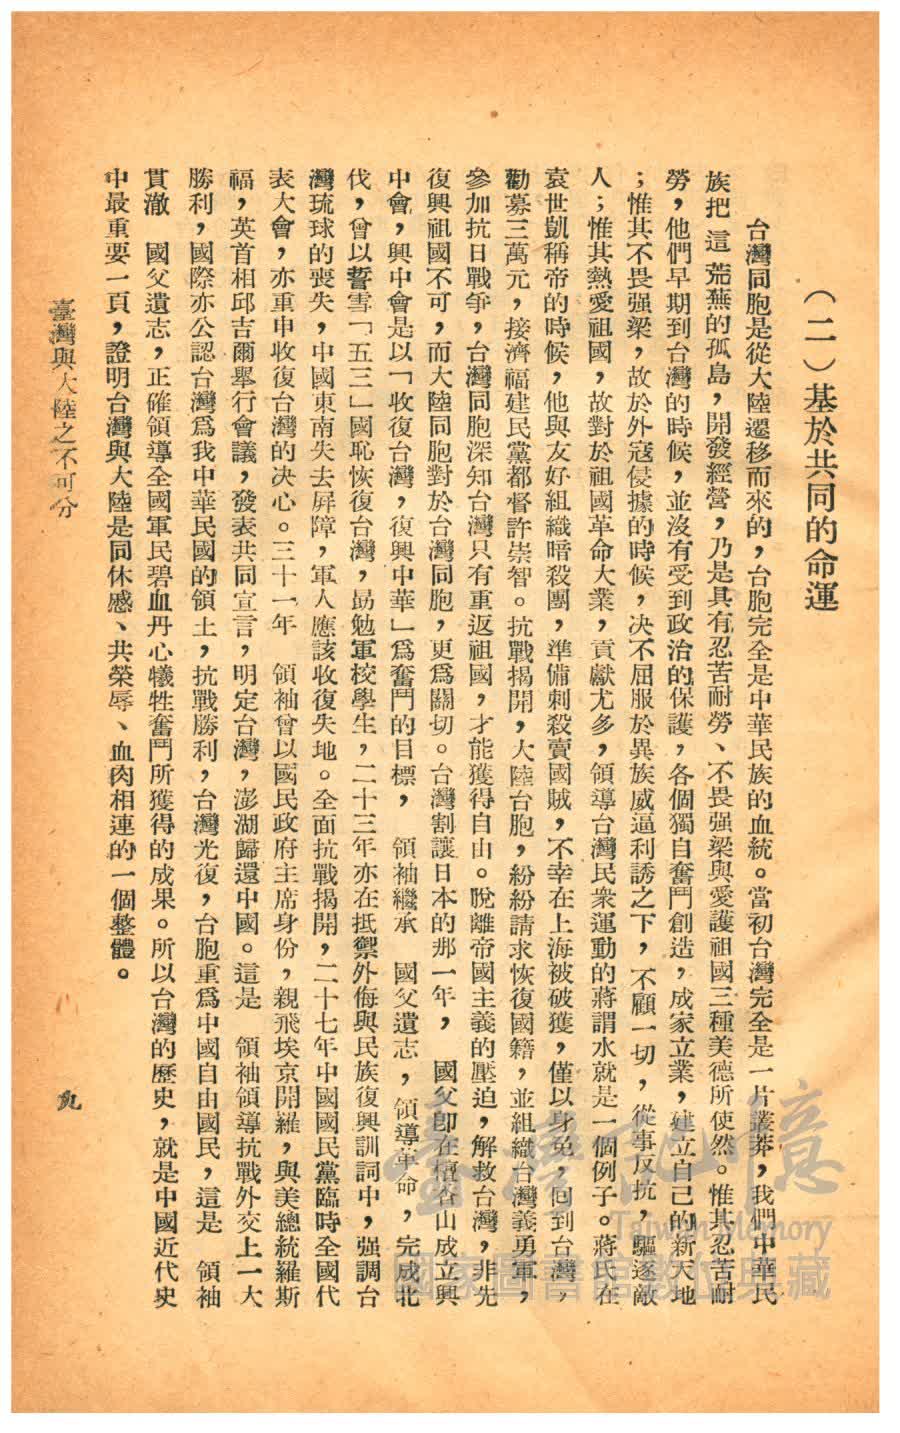 （二）基於共同的命運
台灣同胞是從大陸遷移而來的，台胞完全是中華民族的血統。當初台灣完全是一片叢莽，我們中華民
族把這荒蕪的孤島，開發經營，乃是具有忍苦耐勞、不畏强梁與愛護祖國三種美德所使然。惟其忍苦耐
勞，他們早期到台灣的時候，並沒有受到政治的保護，各個獨自奮鬥創造，成家立業，建立自己的新天地
；惟其不畏强梁，故於外寇侵據的時候，決不屈服於異族威逼利誘之下，不顧一切，從事反抗，驅逐敵
人；惟其熱愛祖國，故對於祖國革命大業，貢獻尤多，領導台灣民衆運動的蔣謂水就是一個例子。蔣氏在
袁世凱稱帝的時候，他與友好組織暗殺團，準備刺殺賣國賊，不幸在上海被破獲，僅以身免，回到台灣，
勸募三萬元，接濟福建民黨都督許崇智。抗戰揭開，大陸台胞，紛紛請求恢復國籍，並組織台灣義勇軍，
參加抗日戰爭，台灣同胞深知台灣只有重返祖國，才能獲得自由。脫離帝國主義的壓迫，解救台灣，非先
復興祖國不可，而大陸同胞對於台灣同胞，更爲關切。台灣割讓日本的那一年，　國父卽在檀香山成立興
中會，興中會是以「收復台灣，復興中華」爲奮鬥的目標，　領袖繼承　國父遺志，領導革命，完成北
伐，曾以誓雪「五三」國恥恢復台灣，勗勉軍校學生，二十三年亦在抵禦外侮與民族復興訓詞中，强調台
灣琉球的喪失，中國東南失去屏障，軍人應該收復失地。全面抗戰揭開，二十七年中國國民黨臨時全國代
表大會，亦重申收復台灣的決心。三十一年　領袖曾以國民政府主席身份，親飛埃京開羅，與美總統羅斯
福，英首相邱吉爾舉行會議，發表共同宣言，明定台灣，澎湖歸還中國。這是　領袖領導抗戰外交上一大
勝利，國際亦公認台灣爲我中華民國的領土，抗戰勝利，台灣光復，台胞重爲中國自由國民，這是　領袖
貫澈　國父遺志，正確領導全國軍民碧血丹心犧牲奮鬥所獲得的成果。所以台灣的歷史，就是中國近代史
中最重要一頁，證明台灣與大陸是同休慼、共榮辱、血肉相連的一個整體。
臺灣與大陸之不可分
九
臺灣記憶
Taiwan Memory
國家圖書館數位典藏